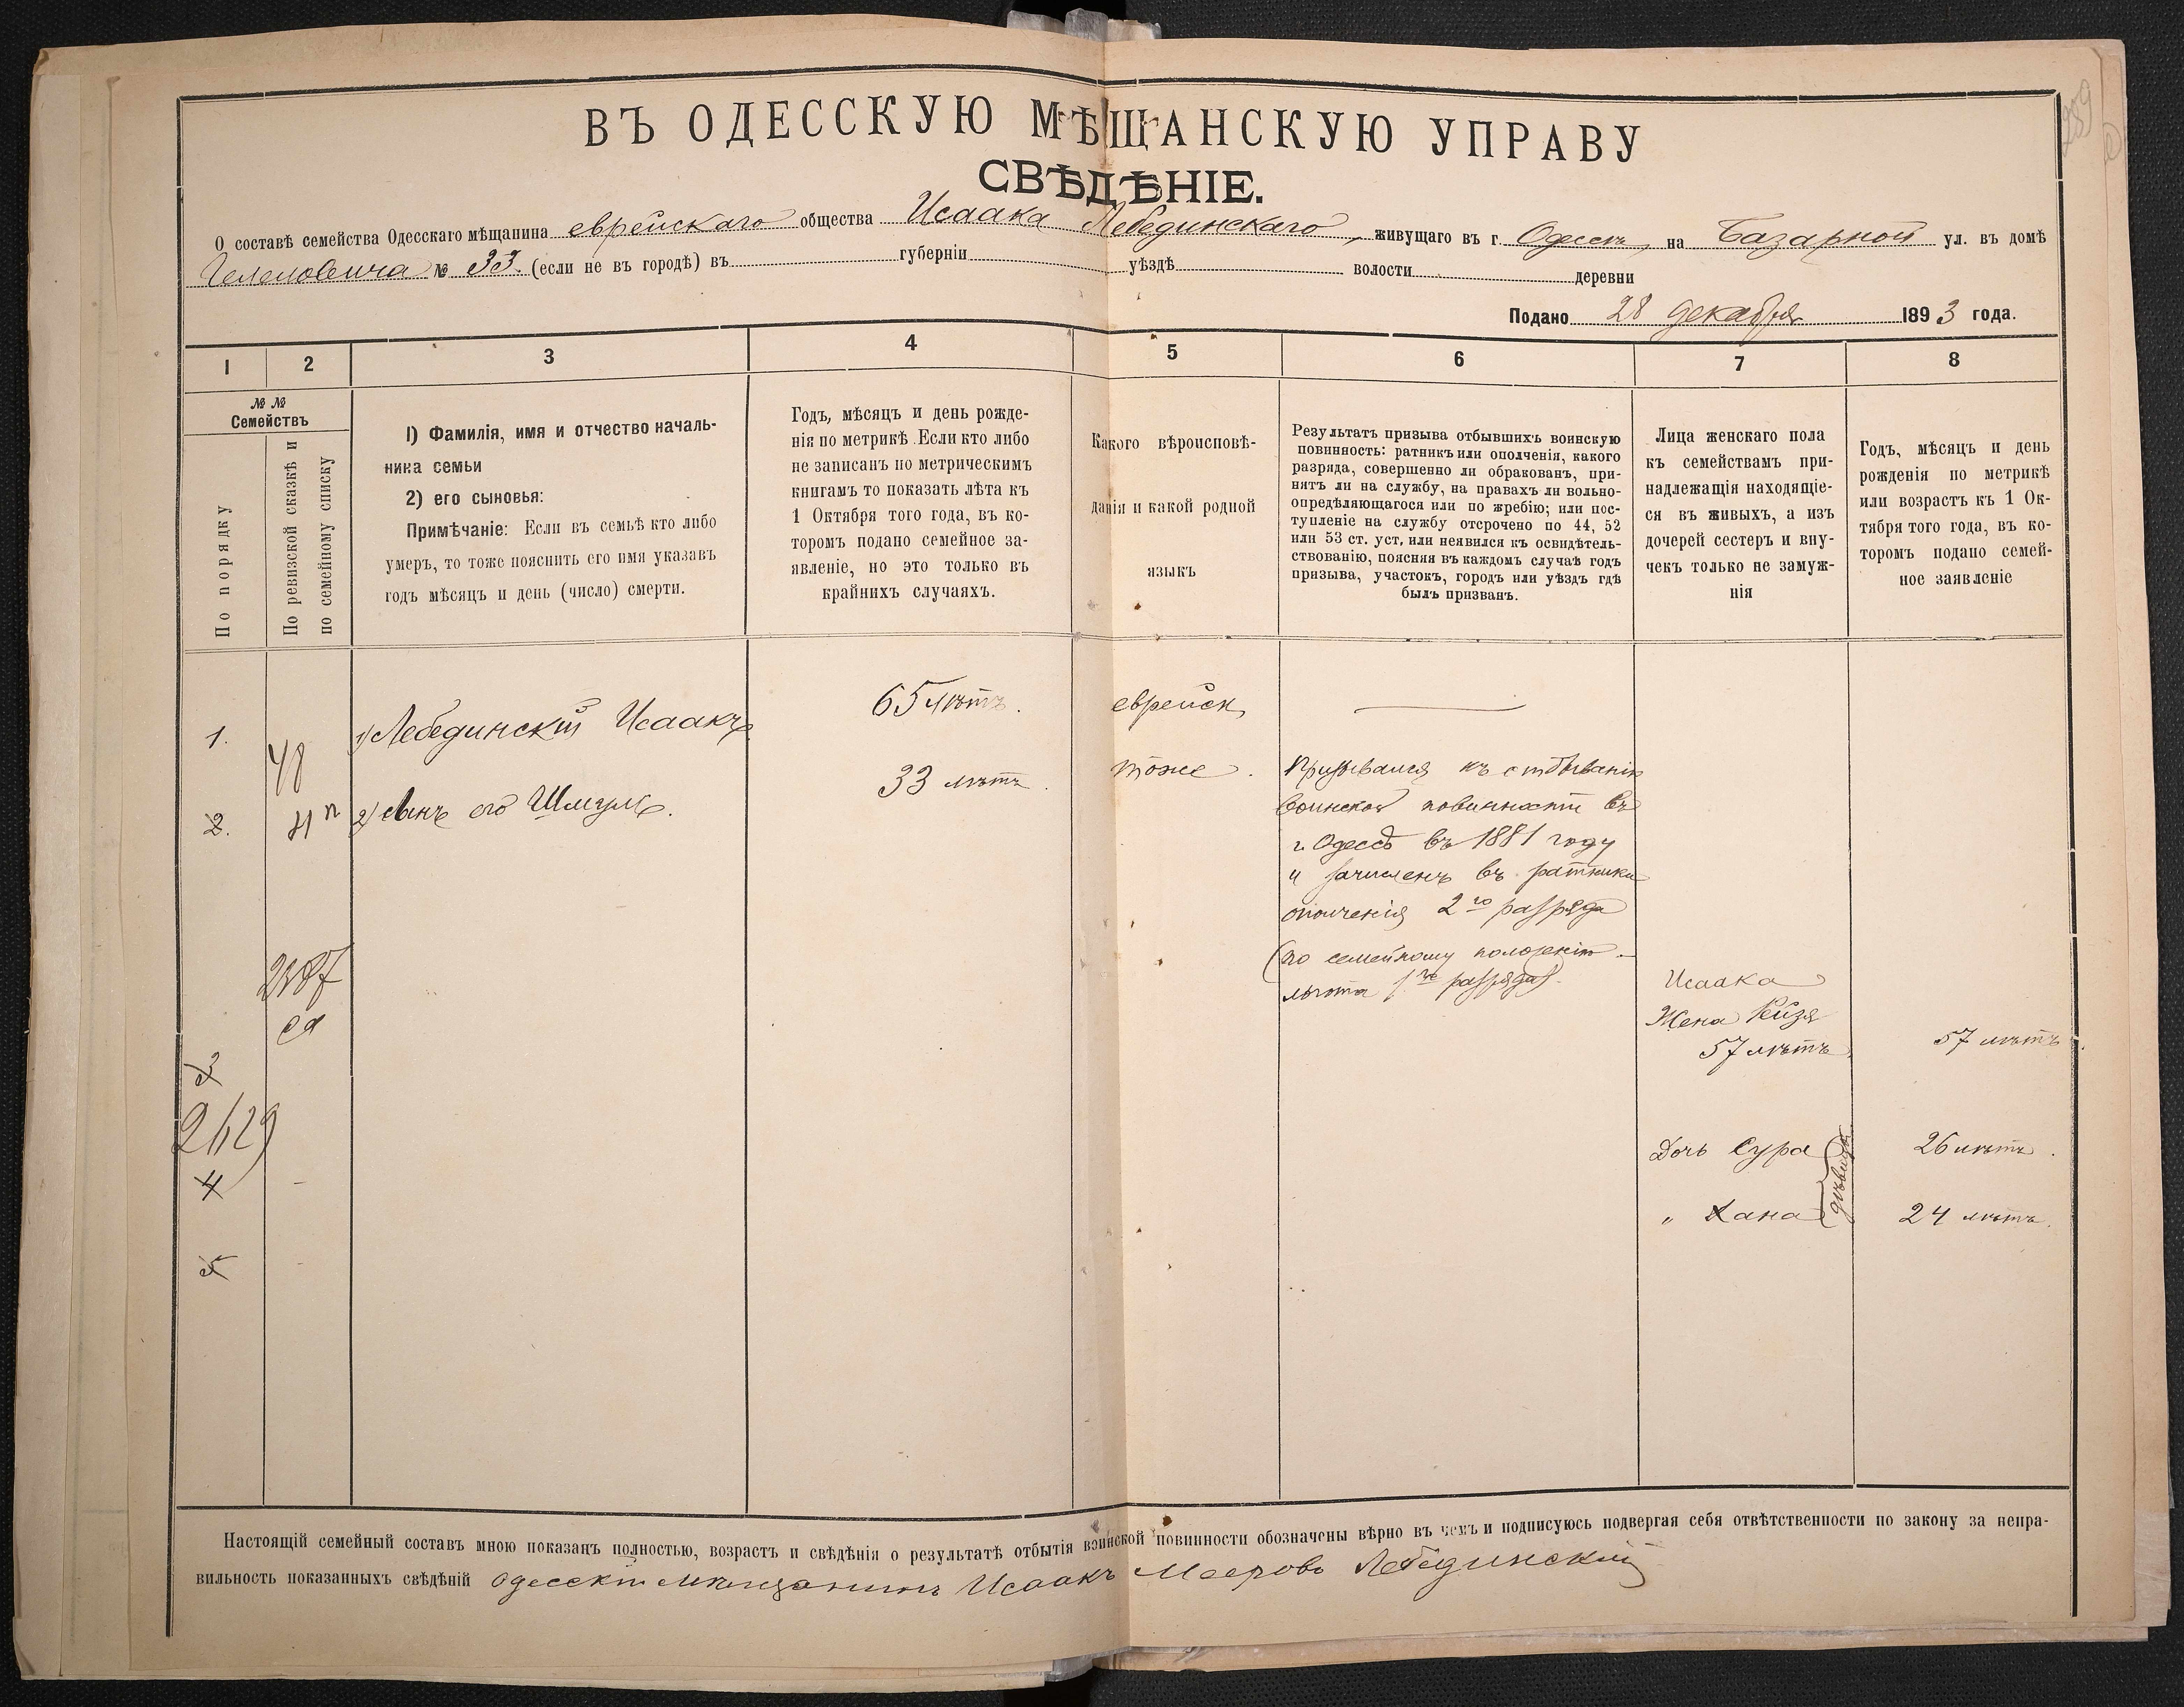 ВЪ ОДЕССКУЮ МѢЩАНСКУЮ УПРАВУ
СВѢДѢНІЕ.
О составѣ семейства Одесскаго мѣщанина еврейскаго общества Исаака Лебединскаго, живущаго въ г. Одессѣ, на Базарной ул. въ домѣ
№ 33. (если не въ городѣ) въ губерніи уѣздѣ волости деревни
Подано 28 декабря 1893 года.
1 2 3 4 5 6 7 8
№ №
Семействъ
По порядку
По ревизской сказкѣ и
по семейному списку
1) Фамилія, имя и отчество началь-
ника семьи
2) его сыновья:
Примѣчаніе: Если въ семьѣ кто либо
умеръ, то тоже пояснить его имя указавъ
годъ мѣсяцъ и день (число) смерти.
Годъ, мѣсяцъ и день рожде-
нія по метрикѣ. Если кто либо
не записанъ по метрическимъ
книгамъ то показать лѣта къ
1 Октября того года, въ ко-
торомъ подано семейное за-
явленіе, но это только въ
крайнихъ случаяхъ.
Какого вѣроисповѣ-
данія и какой родной
языкъ
Результатъ призыва отбывшихъ воинскую
повинность: ратникъ или ополченія, какого
разряда, совершенно ли обракованъ, при-
нятъ ли на службу, на правахъ ли вольно-
опредѣляющагося или по жребію; или пос-
тупленіе на службу отсрочено по 44, 52
или 53 ст. уст. или неявился къ освидѣтель-
ствованію, поясняя въ каждомъ случаѣ годъ
призыва, участокъ, городъ или уѣздъ гдѣ
былъ призванъ.
Лица женскаго пола
къ семействамъ при-
надлежащія находящіе-
ся въ живыхъ, а изъ
дочерей сестеръ и вну-
чекъ только не замуж-
нія
Годъ, мѣсяцъ и день
рожденія по метрикѣ
или возрастъ къ 1 Ок-
тября того года, въ ко-
торомъ подано семей-
ное заявленіе
1. 48 1) Лебединскій Исаакъ 65 лѣтъ. еврейск.
2. 2) сынъ его Шмуль. 33 лѣтъ. тоже.
Призывался къ отбыванію
воинской повинности въ
г. Одессѣ въ 1881 году
и зачисленъ въ ратники
ополченія 2го разряда
(по семейному положенію
льгота 1го разряда).
3
Исаака
Жена Рейзя
57 лѣтъ 57 лѣтъ.
4 Дочь Сура 26 лѣтъ.
5 " Хана 24 лѣтъ.
дѣвицы
Настоящій семейный составъ мною показанъ полностью, возрастъ и свѣдѣнія о результатѣ отбытія воинской повинности обозначены вѣрно въ чемъ и подписуюсь подвергая себя отвѣтственности по закону за непра-
вильность показанныхъ свѣдѣній одесскій мѣщанинъ Исаакъ Мееровъ Лебединскій